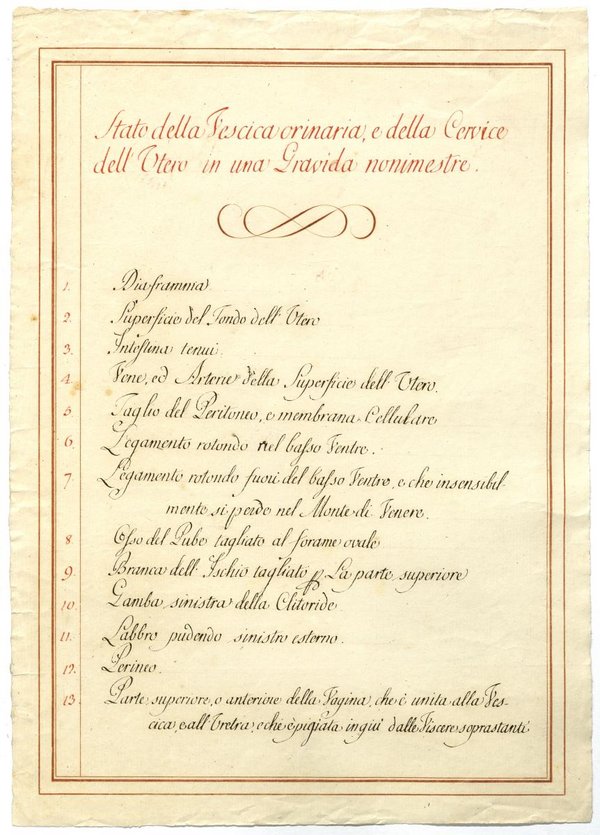 Stato della Vescica orinaria, e della Cervice
dell'Utero in una Gravida nonimestre.
1. Diaframma
2. Superficie del Fondo dell'Utero
3. Intestina tenui.
4. Vene, ed Arterie della Superficie dell'Utero.
5. Taglio del Peritoneo, e membrana Cellulare
6. Legamento rotondo nel basso Ventre.
7. Legamento rotondo fuori del basso Ventre, e che insensibil-
mente si perde nel Monte di Venere.
8. Osso del Pube tagliato al forame ovale
9. Branca dell'Ischio tagliato p. La parte superiore
10. Gamba sinistra della Clitoride
11. Labbro pudendo sinistro esterno.
12. Perineo.
13. Parte superiore, o anteriore della Vagina, che è unita alla Ves-
cica, e all'Uretra, e che è pigiata in giu' dalle Viscere soprastanti